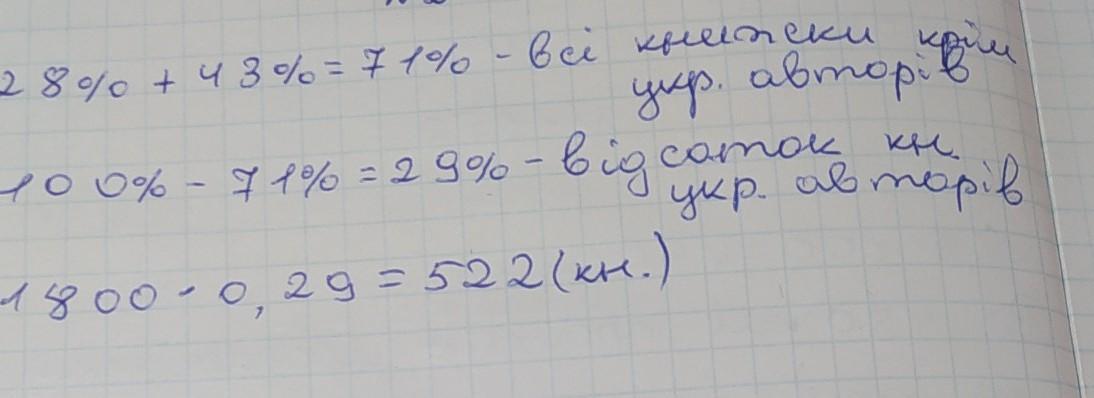 28% + 43% = 71% - всі книжки крім
укр. авторів
100% - 71% = 29% - відсоток кн.
укр. авторів
1800 · 0,29 = 522 (кн.)